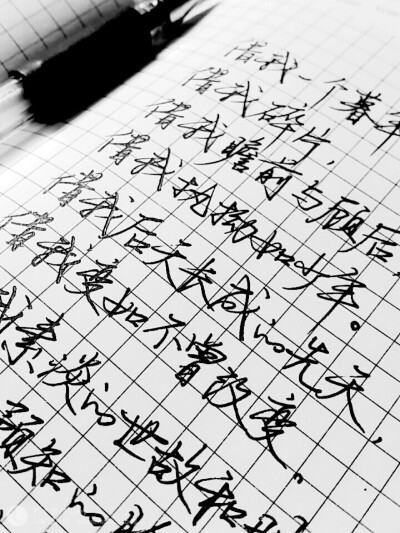 借我一个暮年
借我碎片，
借我瞻前与顾后，
借我执拗如少年。
借我后天长成的先天，
借我变如不曾改变。
我素淡的世故和
预知的